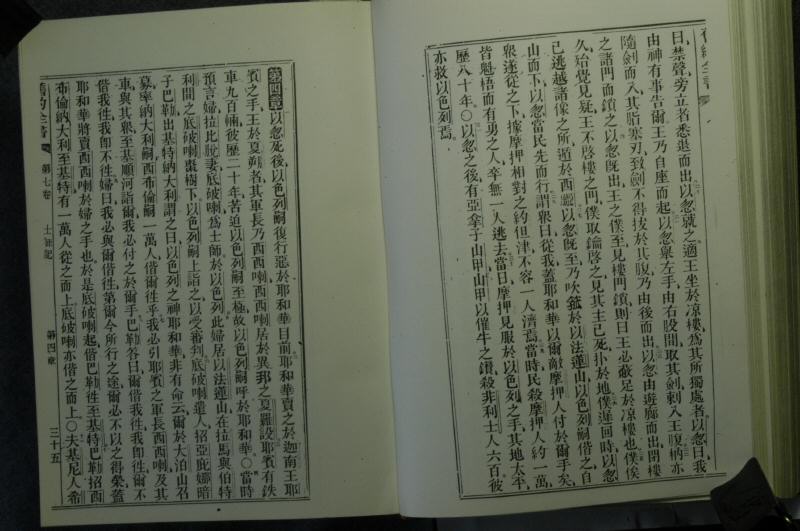 曰禁聲旁立者悉退而出以忽就之適王坐於凉樓爲其所獨處者以忽曰我
由神有事告爾王乃自座而起以忽舉左手由右股間取其劍刺入王腹柄亦
隨劍而入其脂塞刃致劍不得拔於其腹乃由後而出以忽由遊廊而出閉樓
之諸門而鎖之以忽既出王之僕至見樓門鎖則曰王必蔽足於凉樓也僕俟
久殆覺見疑王不啓樓之門僕取鑰啓之見其主已死扑於地僕遲回時以忽
已逃越諸像之所遁於西 以忽既至乃吹 於以法蓮山以色列嗣偕之自
山而下以忽當民先而行謂衆曰從我蓋耶和華以爾敵摩押人付於爾手矣
衆遂從之下據摩押相對之約但津不容一人濟焉當時民殺摩押人約一萬
皆魁梧而有勇之人卒無一人逃去當日摩押見服於以色列之手其地太平
歷八十年○以忽之後有亞拿子山甲山甲以催牛之 殺非利士人六百彼
亦救以色列焉
第四章 以忽死後以色列嗣復行惡於耶和華目前耶和華賣之於迦南王耶
賓之手王於夏 者其軍長乃西西喇西西喇居於異邦之夏羅設耶賓有鉄
車九百輛彼歷二十年苦迫以色列嗣至極故以色列嗣呼於耶和華○當時
預言婦拉比 妻底破喇爲士師於以色列此婦居以法蓮山在拉馬與伯特
利間之底破喇棗樹下以色列嗣上詣之以受審判底破喇遣人招亞庇娜暗
子巴勒出基特納大利謂之曰以色列之神耶和華非有命云爾於大泊山召
募率納大利嗣西布倫嗣一萬人偕爾徃乎我必引耶賓之軍長西西喇及其
車與其衆至基順河詣爾我必付之於爾手巴勒答曰爾偕我徃我卽徃爾不
偕我徃我卽不徃婦曰我必與爾偕徃第爾今所行之途爾必不以之得榮蓋
耶和華將賣西西喇於婦之手也於是底破喇起偕巴勒徃至基特巴勒招西
布倫納大利至基特有一萬人從之而上底破喇亦偕之而上○夫基尼人希
舊約全書 第七卷 士師記 第四章 三十五